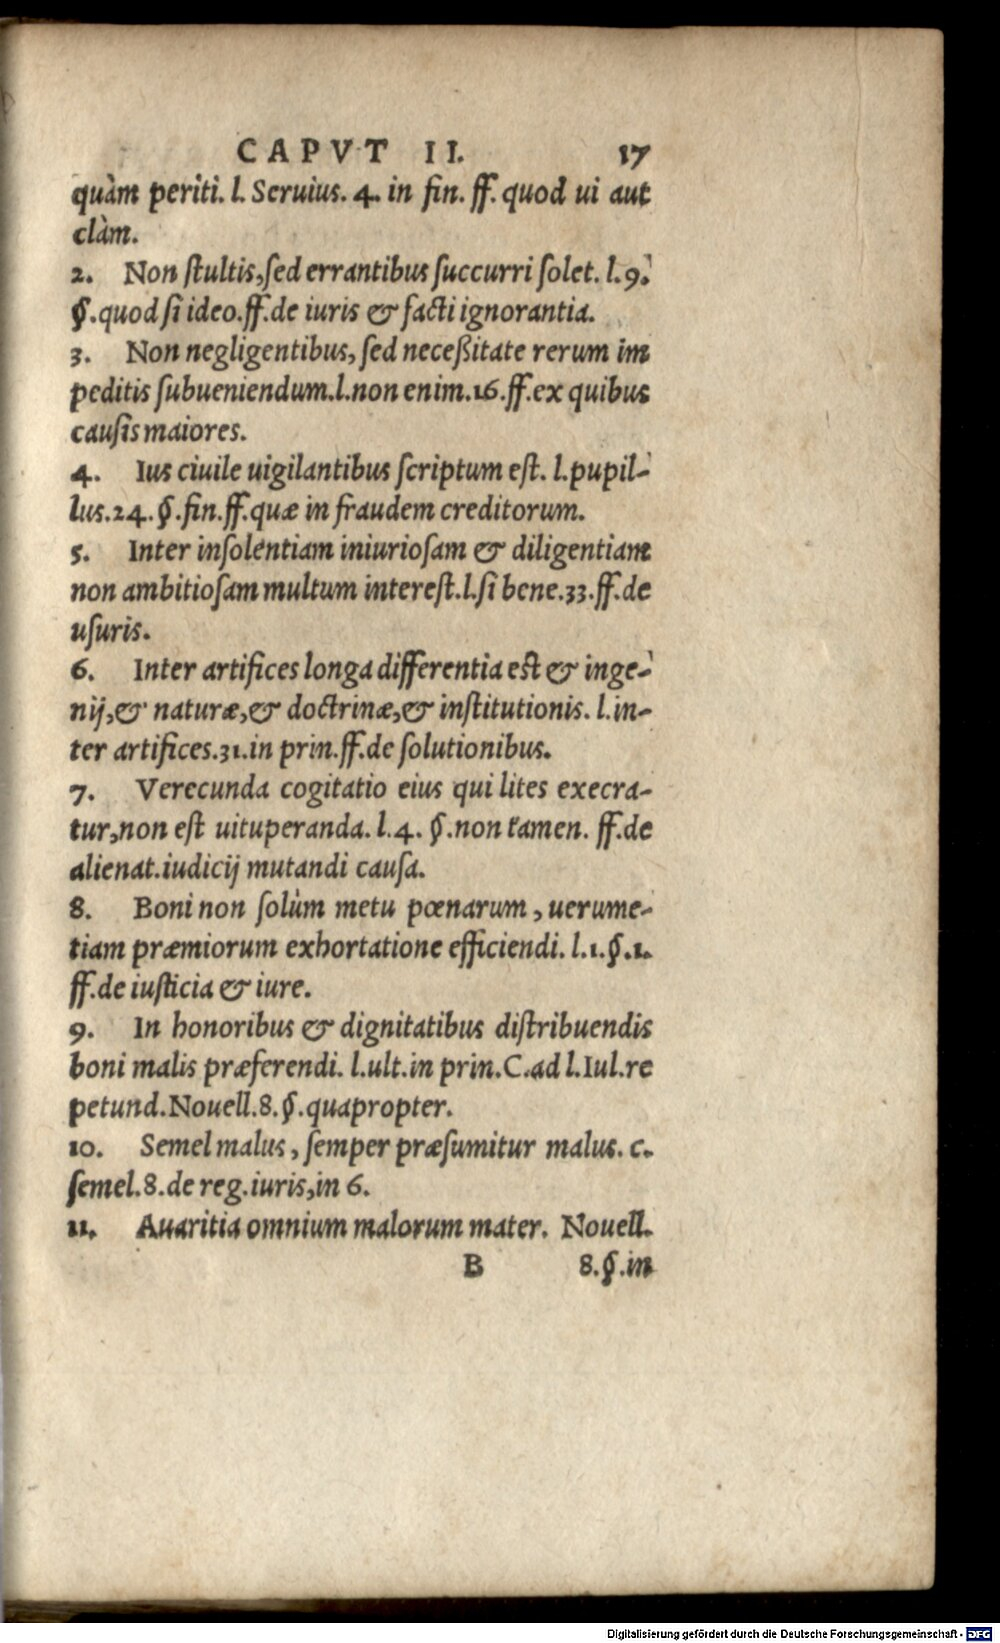 CAPVT II. 17
quàm periti. l. Seruius. 4. in fin. ff. quod ui aut
clàm.
2. Non ſtultis, ſed errantibus ſuccurri ſolet. l. 9.
§. quod ſi ideo. ff. de iuris & facti ignorantia.
3. Non negligentibus, ſed neceßitate rerum im
peditis ſubueniendum. l. non enim. 16. ff. ex quibus
cauſis maiores.
4. Ius ciuile uigilantibus ſcriptum eſt. l. pupil-
lus. 24. §. fin. ff. quæ in fraudem creditorum.
5. Inter inſolentiam iniurioſam & diligentiam
non ambitioſam multum intereſt. l. ſi bene. 33. ff. de
uſuris.
6. Inter artifices longa differentia eſt & inge-
nij, & naturæ, & doctrinæ, & inſtitutionis. l. in-
ter artifices. 31. in prin. ff. de ſolutionibus.
7. Verecunda cogitatio eius qui lites execra-
tur, non eſt uituperanda. l. 4. §. non tamen. ff. de
alienat. iudicij mutandi cauſa.
8. Boni non ſolùm metu pœnarum, uerume-
tiam præmiorum exhortatione efficiendi. l. 1. §. 1.
ff. de iuſticia & iure.
9. In honoribus & dignitatibus diſtribuendis
boni malis præferendi. l. ult. in prin. C. ad l. Iul. re
petund. Nouell. 8. §. quapropter.
10. Semel malus, ſemper præſumitur malus. c.
ſemel. 8. de reg. iuris, in 6.
11. Auaritia omnium malorum mater. Nouell.
B 8. §. in
Digitalisierung gefördert durch die Deutsche Forschungsgemeinschaft - DFG